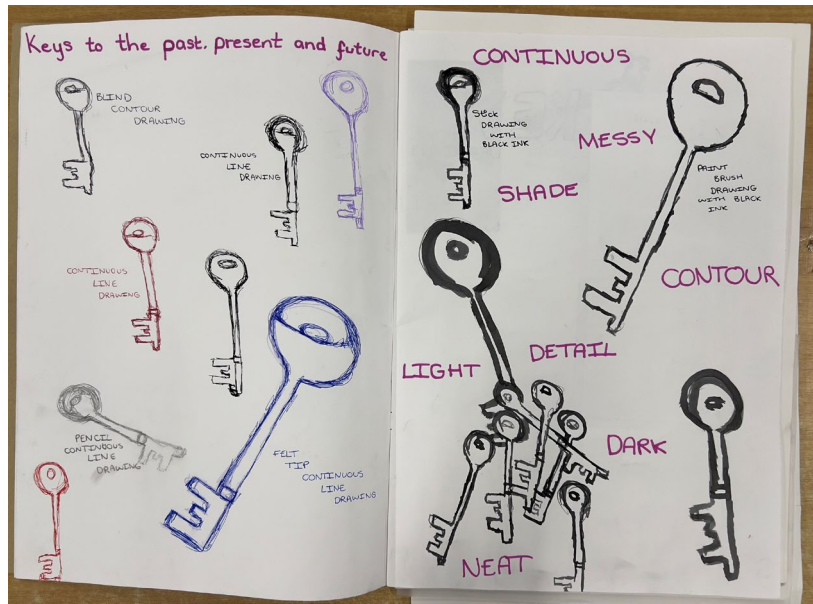 Keys to the past. present and future
BLIND
CONTOUR
DRAWING
CONTINUOUS
LINE
DRAWING
CONTINUOUS
LINE
DRAWING
PENCIL
CONTINUOUS
LINE
DRAWING
FELT
TIP
CONTINUOUS
LINE
DRAWING
CONTINUOUS
Stick
DRAWING
WITH
BLACK INK
MESSY
PAINT
BRUSH
DRAWING
WITH BLACK
INK
SHADE
CONTOUR
DETAIL
LIGHT
DARK
NEAT